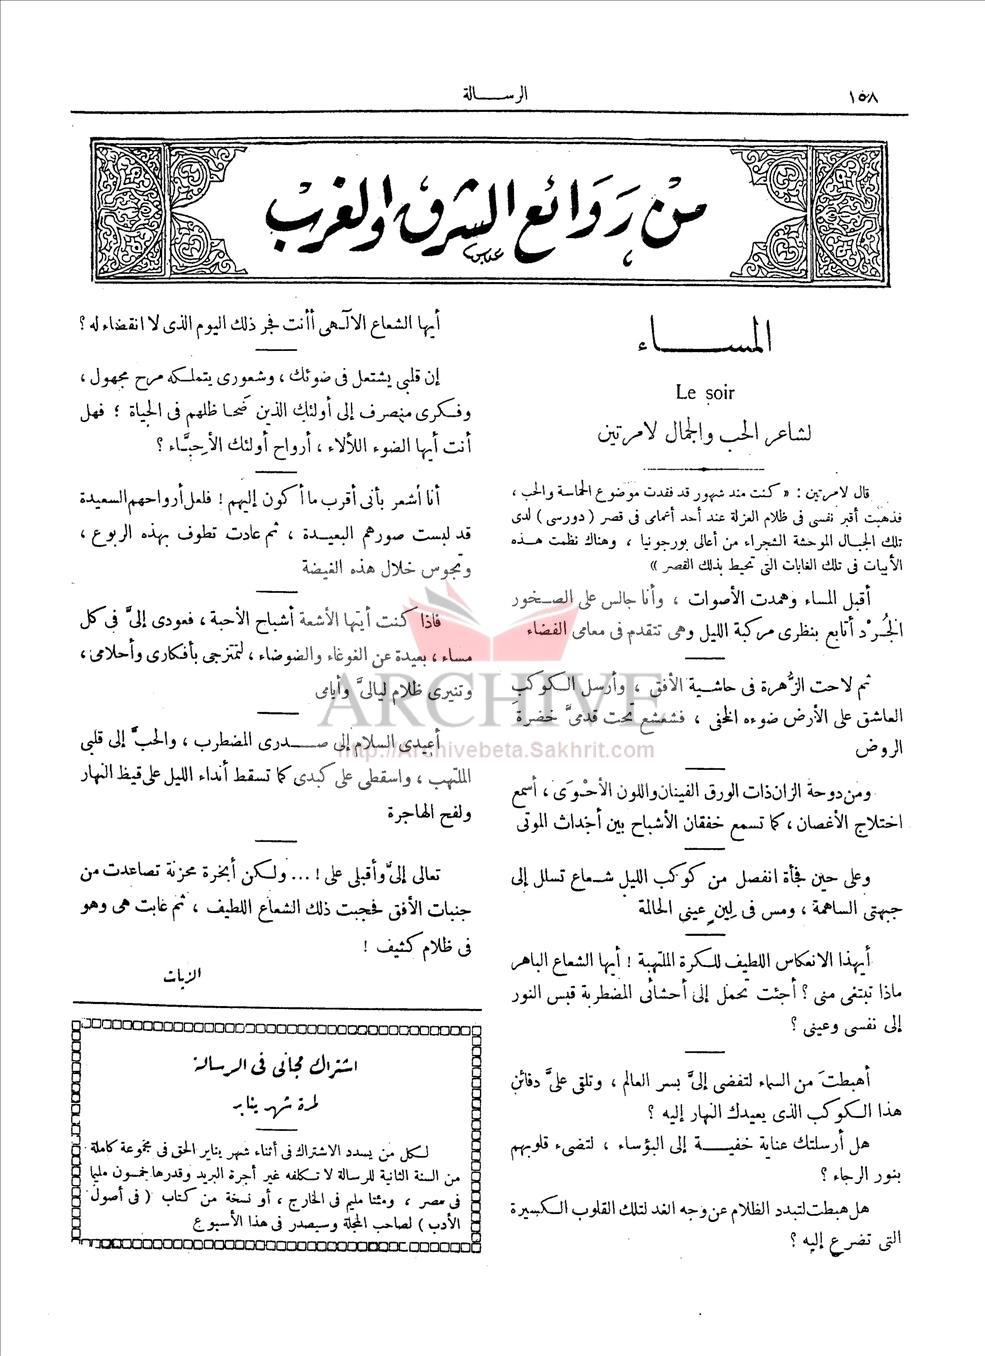 ١٥٨
الرسالة
من روائع الشرق والغرب
عباس
المساء
Le soir
لشاعر الحب والجمال لامرتين
قال لامرتين : « كنت منذ شهور قد فقدت موضوع الحماسة والحب ،
فذهبت أقبر نفسى فى ظلام العزلة عند أحد أعمامى فى قصر (دورسى) لدى
تلك الجبال الموحشة الشجراء من أعالى بورجونيا ، وهناك نظمت هذه
الأبيات فى تلك الغابات التى تحيط بذلك القصر »
أقبل المساء وهمدت الأصوات ، وأنا جالس على الصخور
الجُرْد أتابع بنظرى مركبة الليل وهى تتقدم فى معامى الفضاء
ثم لاحت الزُّهرة فى حاشية الأفق ، وأرسل الكوكب
العاشق على الأرض ضوءه الخفى ، فشعشع تحت قدمىَّ خضرةَ
الروض
ومن دوحة الزان ذات الورق الفينان واللون الأحْوَى ، أسمع
اختلاج الأغصان ، كما تسمع خفقان الأشباح بين أجداث الموتى
وعلى حين فجأة انفصل من كوكب الليل شعاع تسلل إلى
جبهتى الساهمة ، ومس فى لِينٍ عينى الحالمة
أيهذا الانعكاس اللطيف للكرة الملتهبة ! أيها الشعاع الباهر
ماذا تبتغى منى ؟ أجئت تحمل إلى أحشائى المضطربة قبس النور
إلى نفسى وعينى ؟
أهبطتَ من السماء لتفضى إلىَّ بسر العالم ، وتلقى علىَّ دفائن
هذا الكوكب الذى يعيدك النهار إليه ؟
هل أرسلتك عناية خفية إلى البؤساء ، لتضىء قلوبهم
بنور الرجاء ؟
هل هبطت لتبدد الظلام عن وجه الغد لتلك القلوب الكسيرة
التى تضرع إليه ؟
أيها الشعاع الالهى أأنت فجر ذلك اليوم الذى لا انقضاء له ؟
إن قلبى يشتعل فى ضوئك ، وشعورى يتملكه مرح مجهول ،
وفكرى منصرف إلى أولئك الذين ضَحا ظلهم فى الحياة ؛ فهل
أنت أيها الضوء اللألاء ، أرواح أولئك الأحِبَّاء ؟
أنا أشعر بأنى أقرب ما أكون إليهم ! فلعل أرواحهم السعيدة
قد لبست صورهم البعيدة ، ثم عادت تطوف بهذه الربوع ،
وتجوس خلال هذه الغيضة
فاذا كنت أيتها الأشعة أشباح الأحبة ، فعودى إلىَّ فى كل
مساء ، بعيدة عن الغوغاء والضوضاء ، لتمتزجى بأفكارى وأحلامى ،
وتنيرى ظلام ليالىَّ وأيامى
أعيدى السلام إلى صدرى المضطرب ، والحبَّ إلى قلبى
الملتهب ، واسقطى على كبدى كما تسقط أنداء الليل على قيظ النهار
ولفح الهاجرة
تعالى إلىَّ وأقبلى على ! ... ولكن أبخرة محزنة تصاعدت من
جنبات الأفق فحجبت ذلك الشعاع اللطيف ، ثم غابت هى وهو
فى ظلام كثيف !
الزيات
اشتراك مجانى فى الرسالة
لمدة شهر يناير
لكل من يسدد الاشتراك فى أثناء شهر يناير الحق فى مجموعة كاملة
من السنة الثانية للرسالة لا تكلفه غير أجرة البريد وقدرها خمسون مليما
فى مصر ، ومئتا مليم فى الخارج ، أو نسخة من كتاب ( فى أصول
الأدب ) لصاحب المجلة وسيصدر فى هذا الأسبوع
ARCHIVE
http://Archivebeta.Sakhrit.com